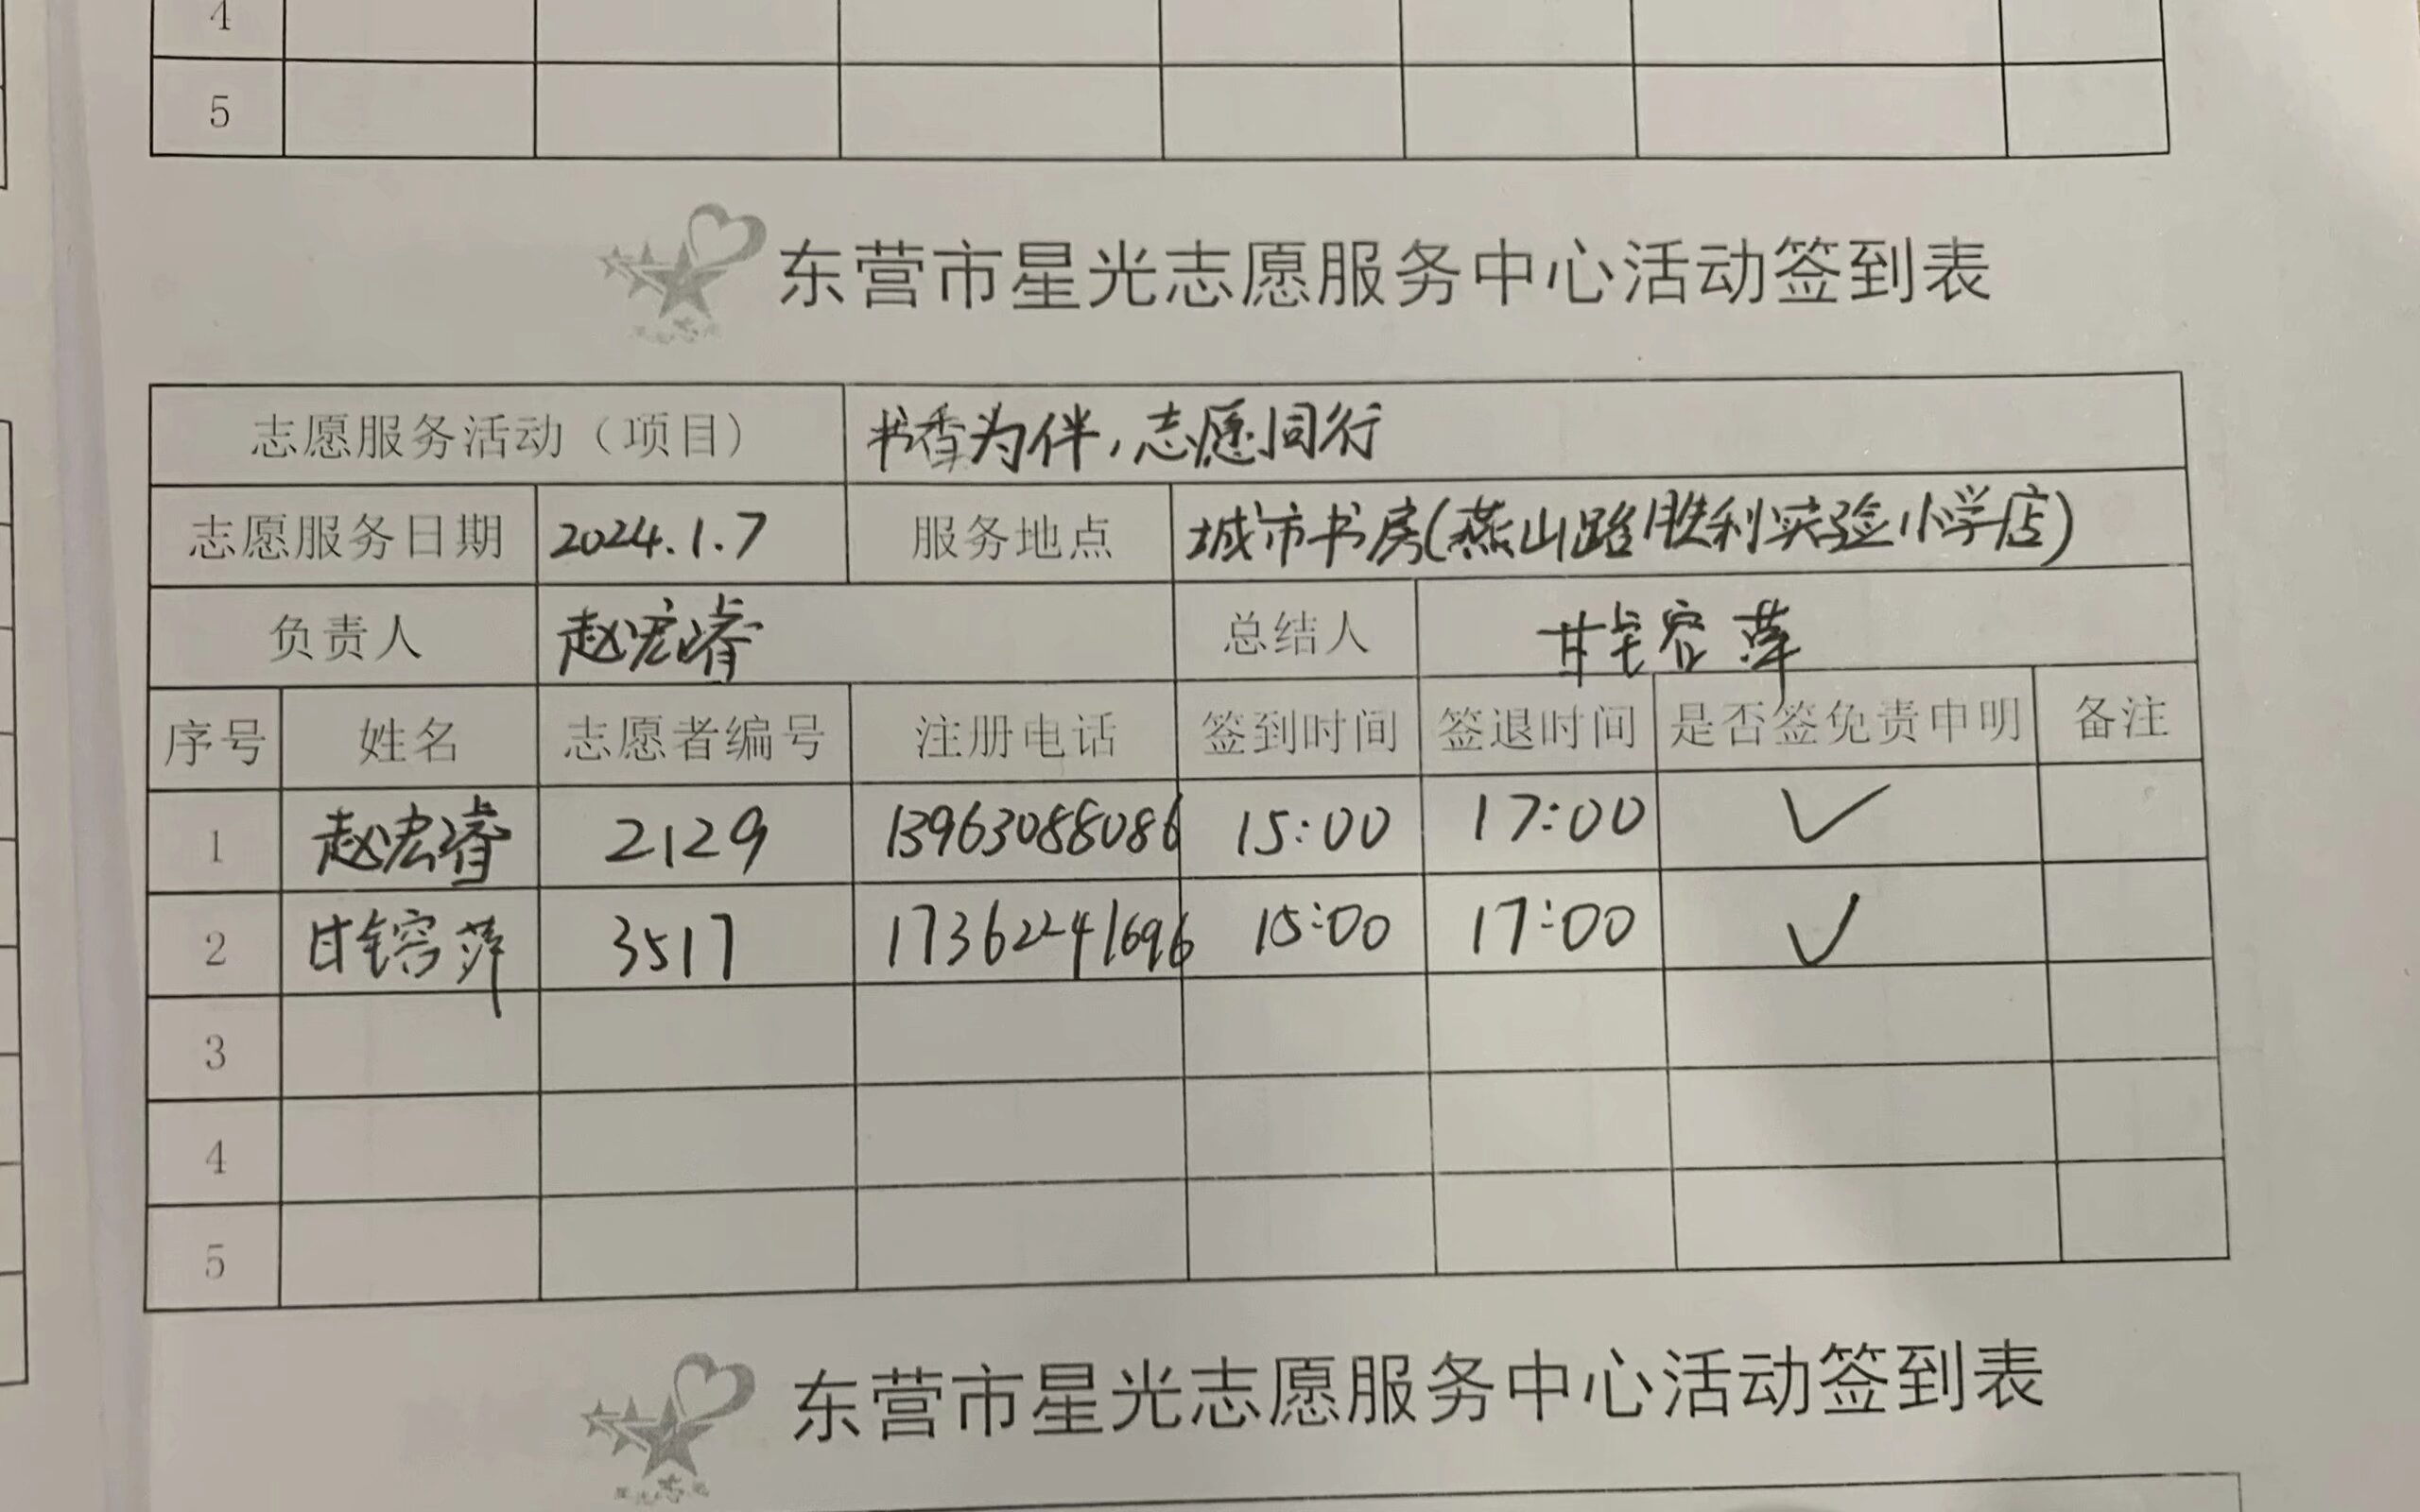 4
5
东营市星光志愿服务中心活动签到表
志愿服务活动（项目） 书香为伴，志愿同行
志愿服务日期 2024.1.7 服务地点 城市书房(燕山路胜利实验小学店)
负责人 赵宏睿 总结人 甘 容 萍
序号 姓名 志愿者编号 注册电话 签到时间 签退时间 是否签免责申明 备注
1 赵宏睿 2129 13963088086 15:00 17:00 ✓
2 甘 萍 3517 17362241696 15:00 17:00 ✓
3
4
5
东营市星光志愿服务中心活动签到表